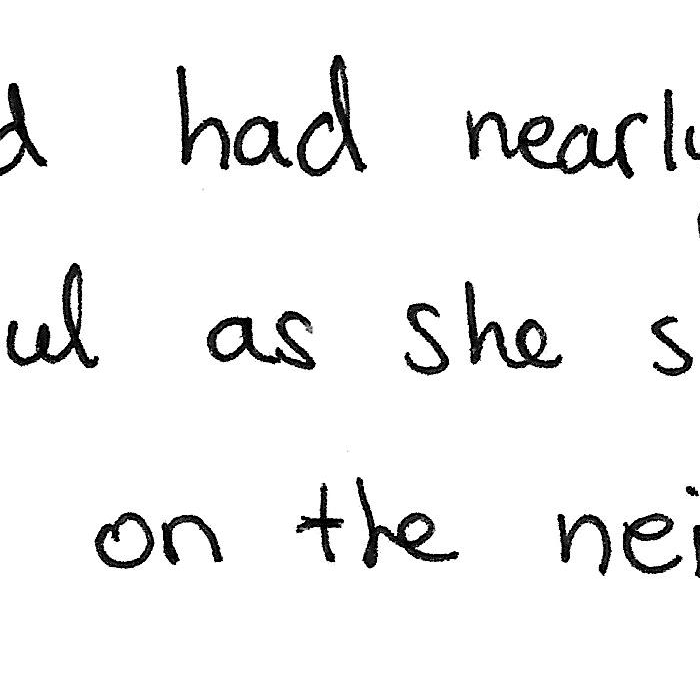 d had nearly
ul as she s
on the nei